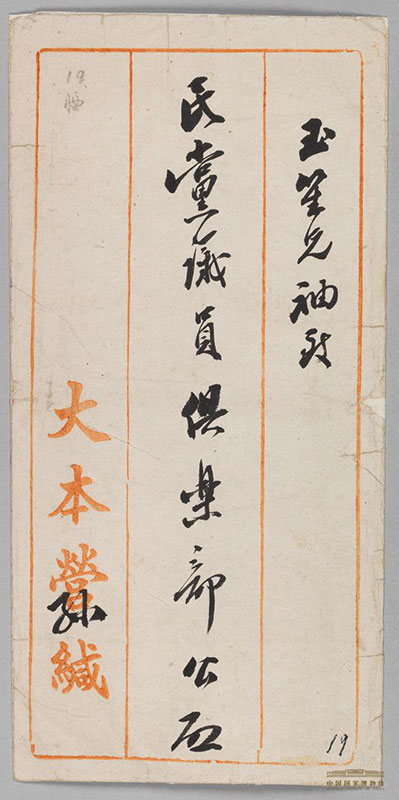 玉笙兄袖致
民黨議員俱樂部公启
大本營緘
孫
19
19
中国国家博物馆